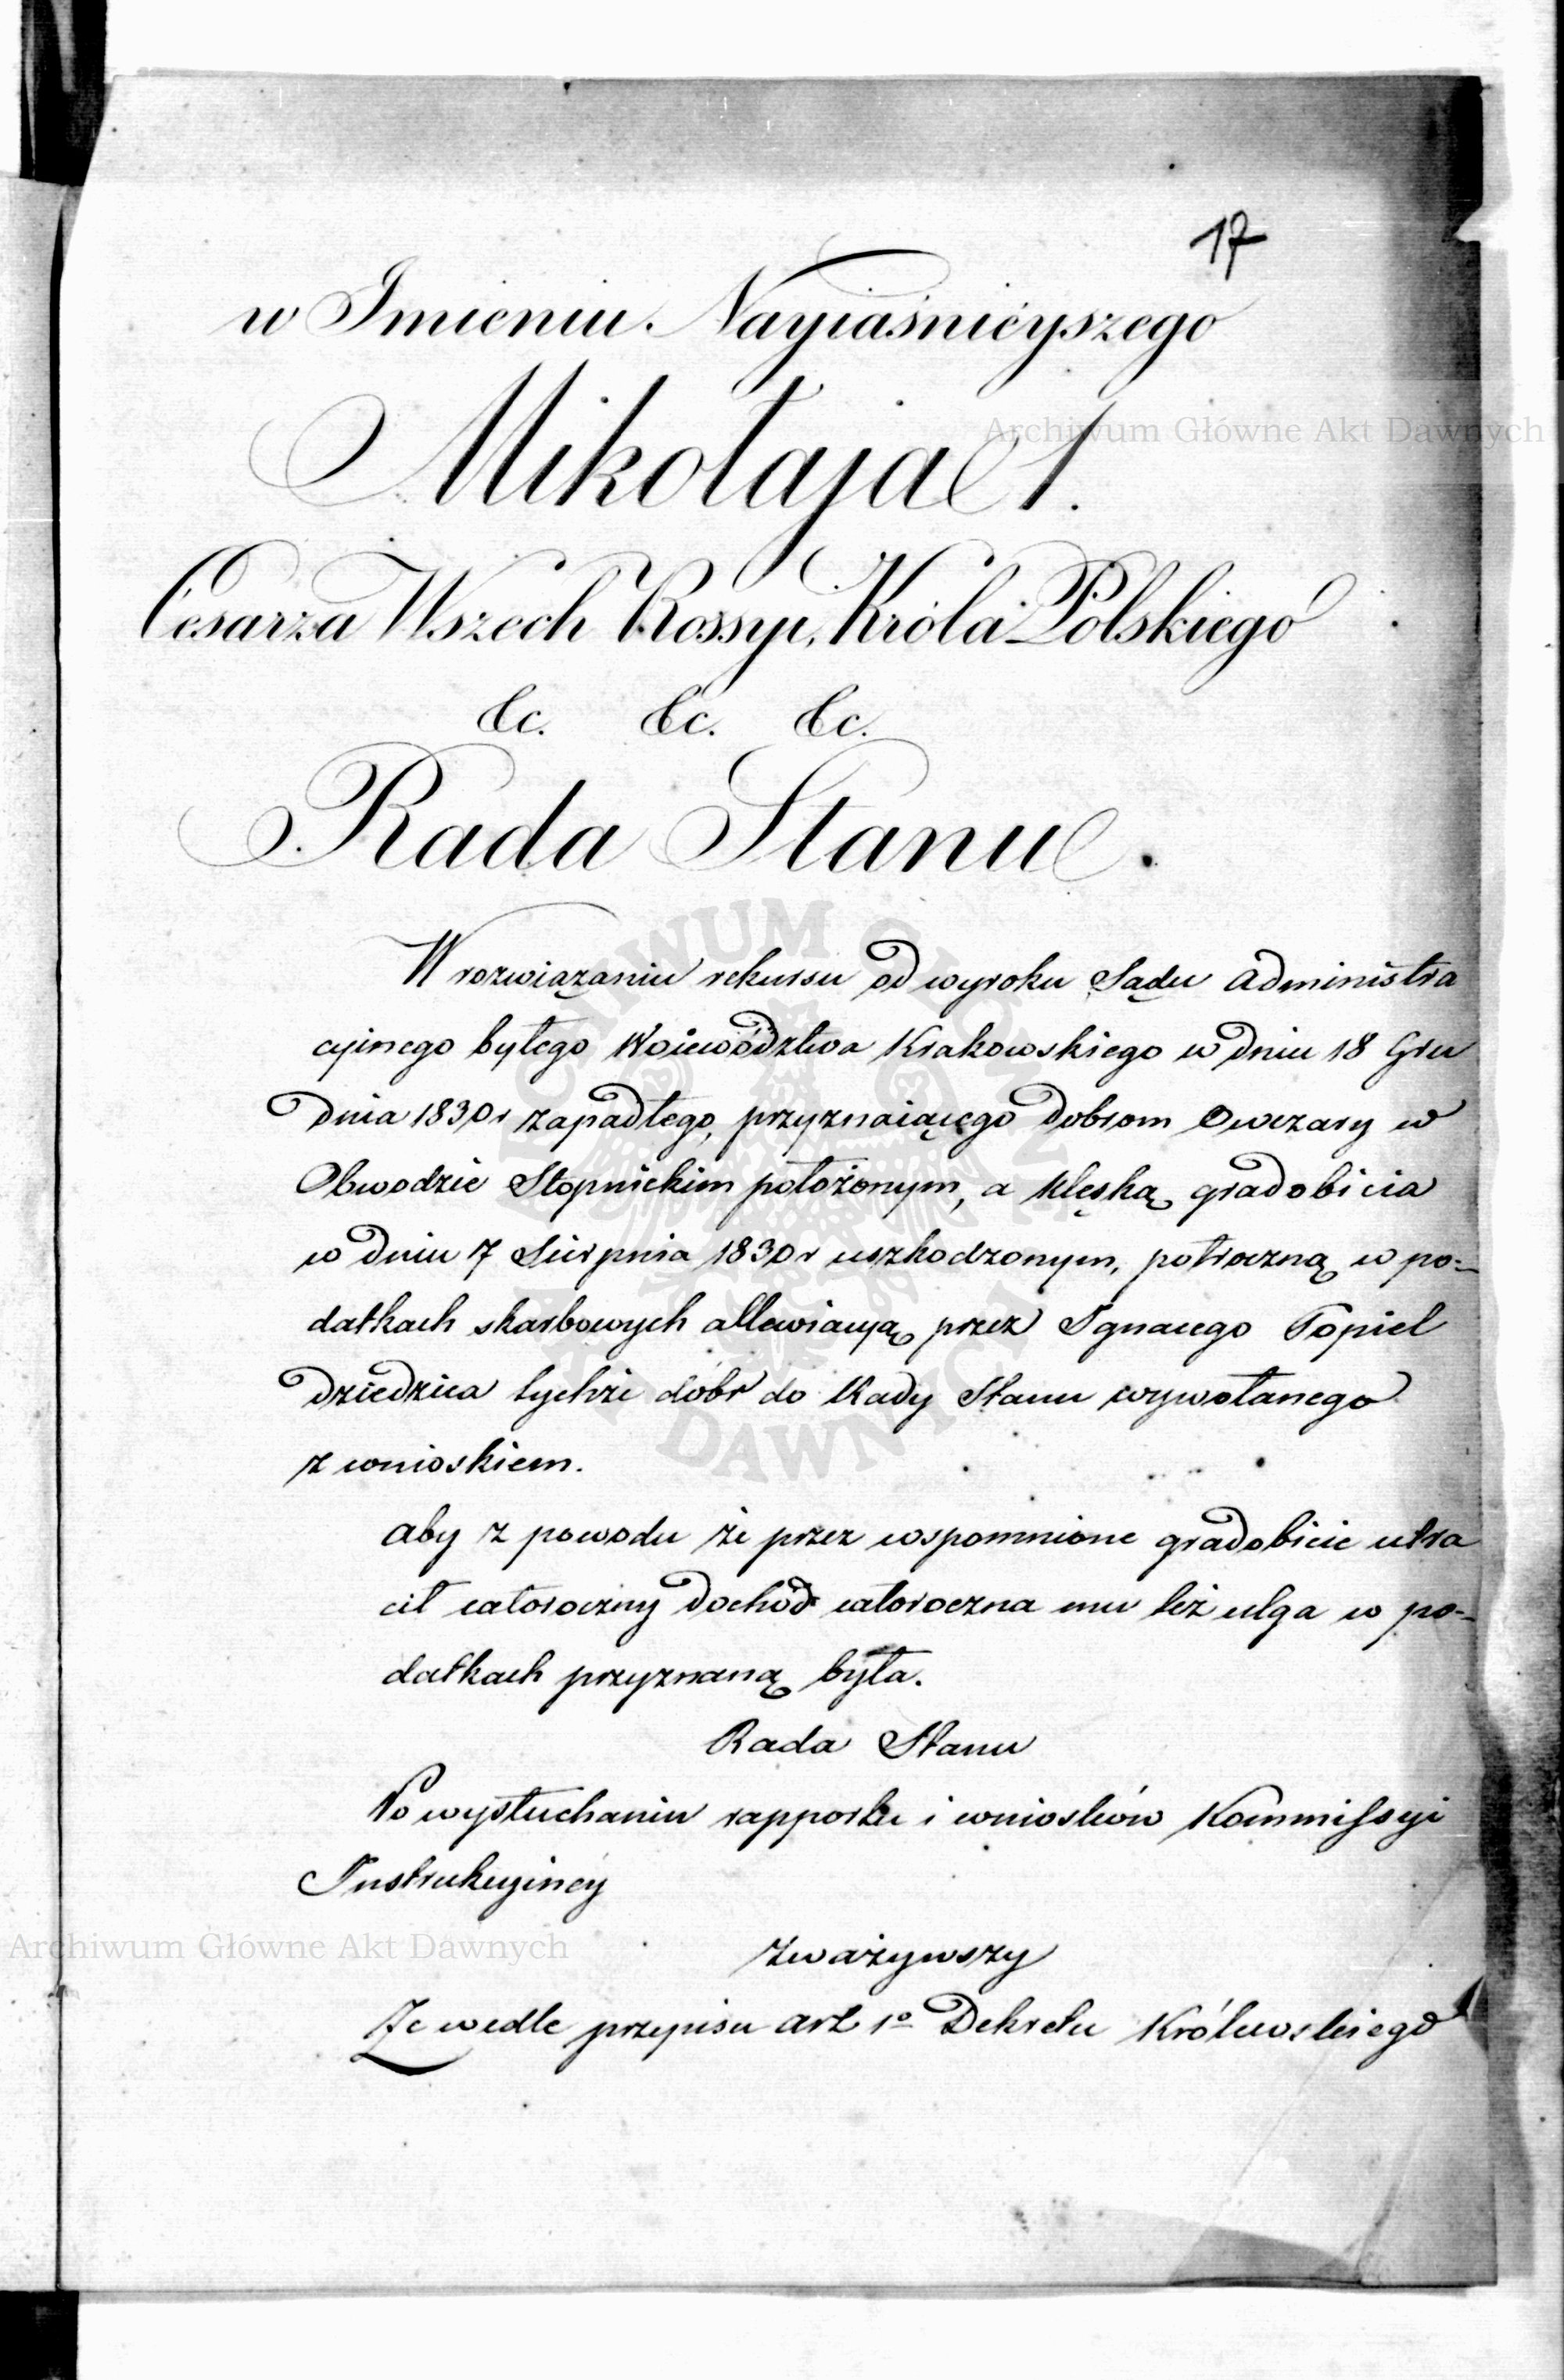 17
w Imieniu Nayiaśnieyszego
Mikołaja I.
Cesarza Wszech Rossyi, Króla Polskiego
&c. &c. &c.
Rada Stanu.
W rozwiązaniu rekursu od wyroku Sądu administra
cyinego byłego Woiewództwa Krakowskiego w dniu 18 Gru
dnia 1830 r zapadłego, przyznaiącego dobrom Owczary w
Obwodzie Stopnickim położonym, a klęską gradobicia
w dniu 7 Sierpnia 1830 r uszkodzonym, półroczną w po-
datkach skarbowych allewiacyą przez Ignacego Popiel
dziedzica tychże dóbr do Rady Stanu wywołanego
z wnioskiem.
aby z powodu że przez wspomnione gradobicie utra
cił całoroczny dochód całoroczna mu też ulga w po-
datkach przyznaną była.
Rada Stanu
Po wysłuchaniu rapportu i wniosków Kommissyi
Instrukcyiney
zważywszy
Że wedle przepisu art 1o Dekretu Królewskiego
Archiwum Główne Akt Dawnych
Archiwum Główne Akt Dawnych
ARCHIWUM GŁÓWNE AKT DAWNYCH